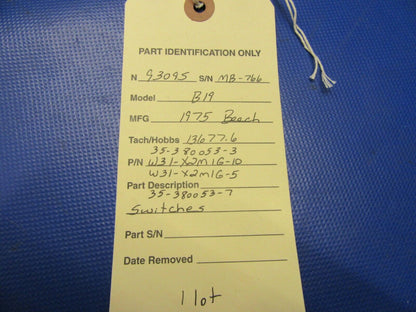 PART IDENTIFICATION ONLY
N 9309S S/N MB-766
Model B19
MFG 1975 Beech
Tach/Hobbs 13677.6
35-380053-3
P/N W31-X2M1G-10
W31-X2M1G-5
Part Description
35-380053-7
Switches
Part S/N
Date Removed
1 lot